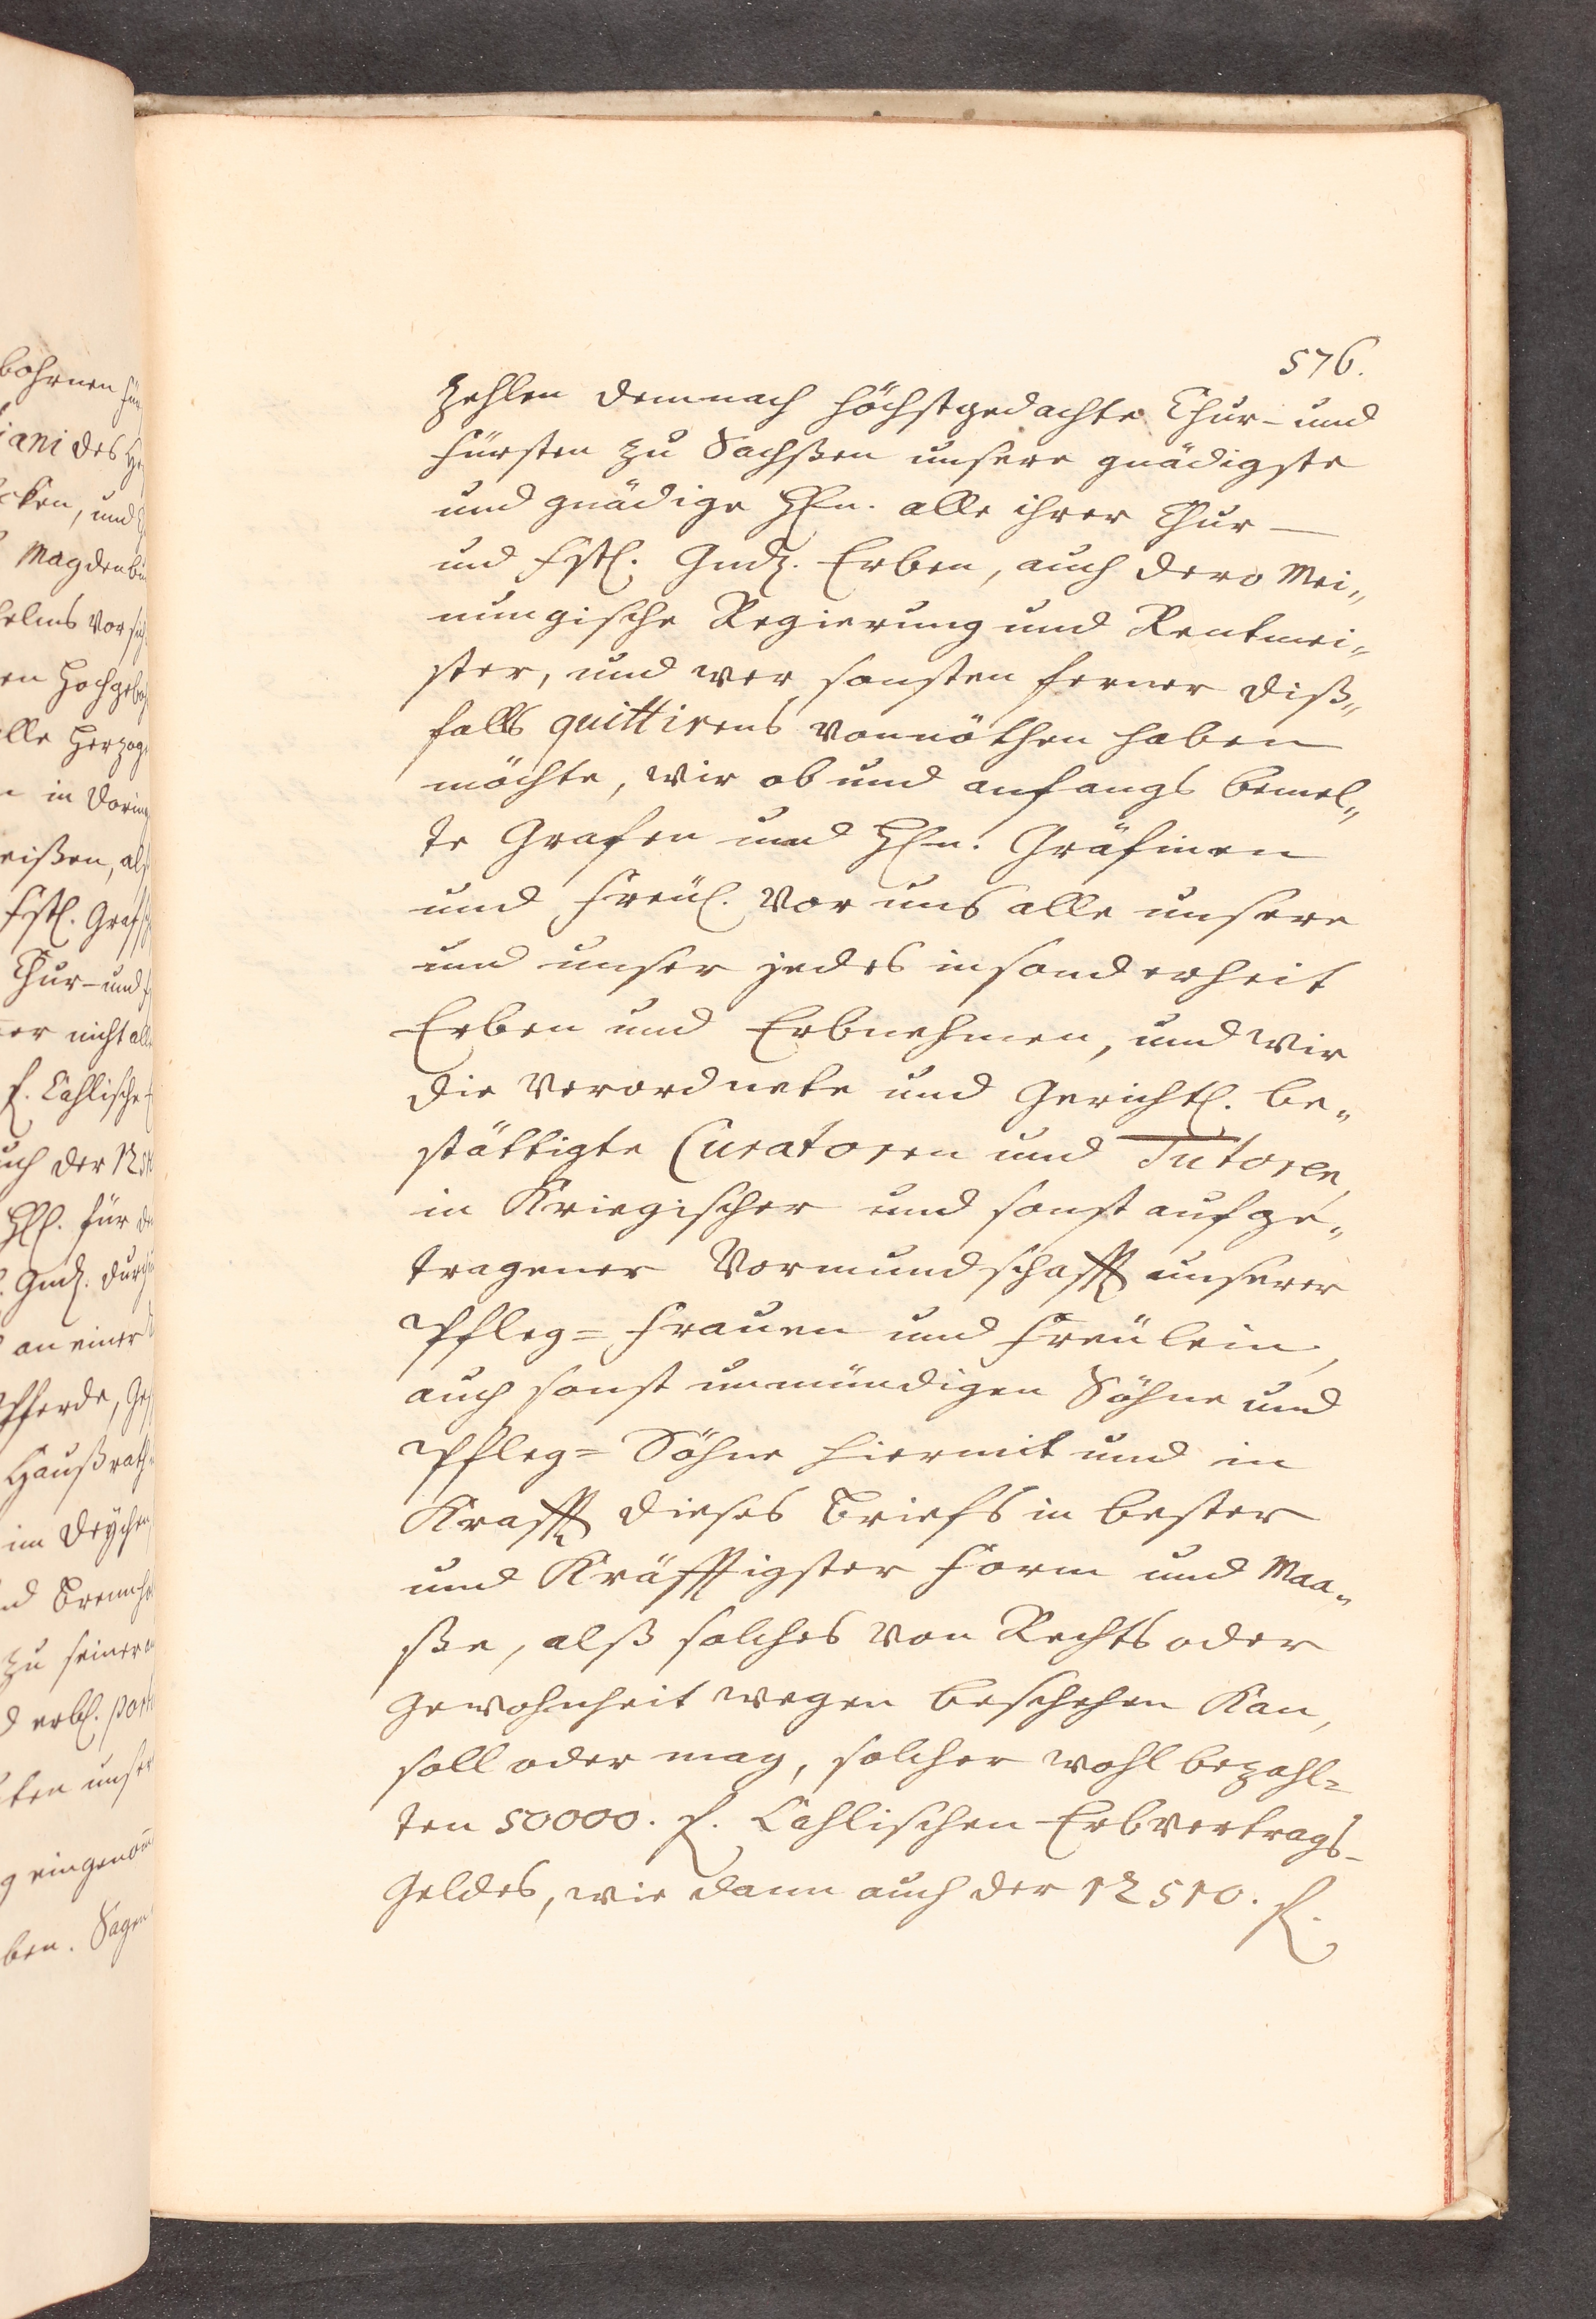 576.
zehlen demnach höchstgedachte Chur- und
Fürsten zu Sachßen unsere gnädigste
und gnädige HEn. alle ihrer Chur-
und Fstl. Gndl. Erben, auch dero Mei„
nungische Regierung und Rentmei„
ster, und wer sonsten ferner diß„
falls quittirens vonnöthen haben
möchte, wir ob und anfangs bemel„
te Grafen und HEn. Gräfinen
und Freül. Vor uns alle unsere
und unser jedes insonderheit
Erben und Erbnehmen, und Wir
die Verordnete und Gerichtl. be„
stättigte Curatoren und Tutoren,
in Kriegischer und sonst aufge„
tragener Vormundschafft unserer
Pfleg= Frauen und Freülein,
auch sonst unmündigen Söhne und
Pfleg= Söhne hiermit und in
Krafft dieses Briefs in bester
und Kräfftigster Form und Maa„
ße, alß solches von Rechts oder
Gewohnheit wegen beschehen Kan,
soll oder mag, solcher wohl bezahl=
ten 50000. f. Cahlischen Erbvertrags-
Geldes, wie dann auch der 12510. f.
bohrnen
iani des
cken, und
Magdenbu
helms Vor sich
en Hochgebo
lle Herzog
in Dorin
eißen, als
Fstl. Graf
Chur- und
er nicht alle
f. Cahlische
uch der 125
für
Gndl. durch
an einer
Pferde, Ge
Haußrath
im Deychen
nd Brennho
zu seiner
erbl. port
ten unser
g eingenom
ben. Sagen